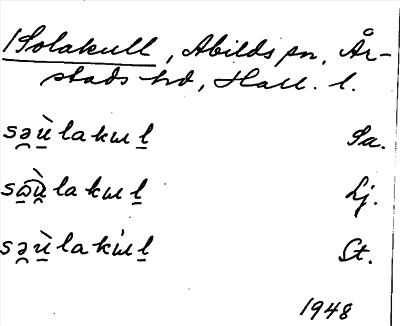 /Solakull, Abilds sn, År-
stads hd, Hall. l.
sə̯ù̱lakɯḻ Sa.
sω̱ù̯lakɯḻ Lj.
sə̯ù̱lakɯ̀ḻ St.
1948